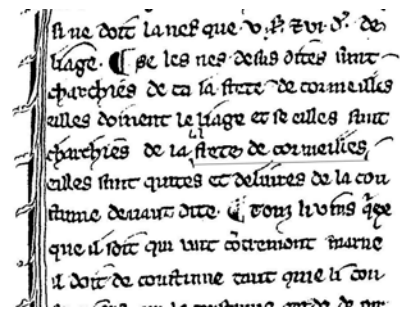 si ne doit la nef que .v. s̃. ⁊ vi. d'. de
liage. ¶ Se les nes desus dites sunt
charchiés de ca la frete de cormeilles
elles doivent le liage et se elles sunt
charchies de la frete de cormeilles,
elles sunt quites et delivres de la cou
stume devant dite. ¶ Touz li vins
que il soit qui vint cõtremont marne
il doit de coustume tant que li con